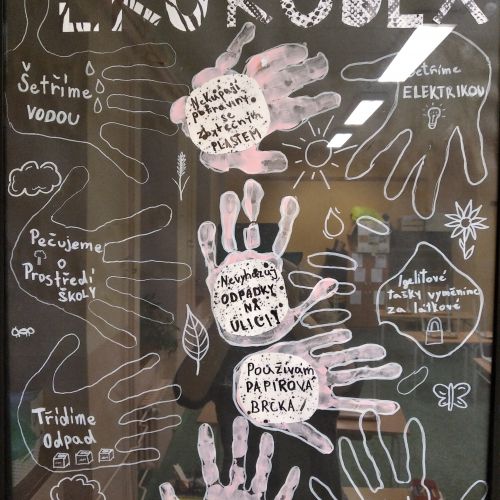 EKOKODEX
Šetříme
VODOU
Nekupuji
potraviny
se
zbytečným
PLASTEM
Šetříme
ELEKTRIKOU
Pečujeme
o
Prostředí
ŠKOLY
Nevyhazuj
ODPADKY
NA
ULICI!
Igelitové
tašky vyměníme
za látkové
Používám
PAPÍROVÁ
BRČKA!
Třídíme
Odpad